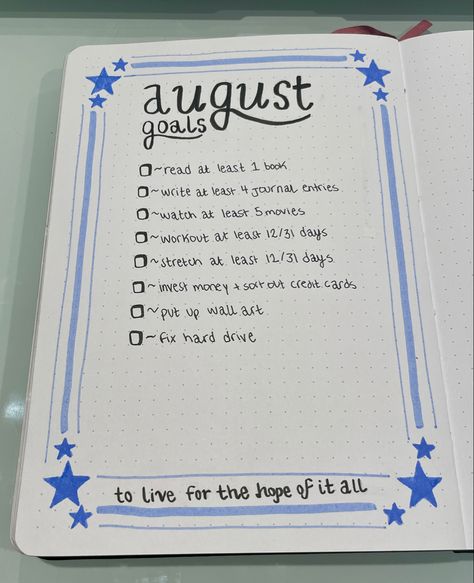 august
goals
~read at least 1 book
~write at least 4 journal entries
~watch at least 5 movies
~workout at least 12/31 days
~stretch at least 12/31 days
~invest money + sort out credit cards
~put up wall art
~fix hard drive
to live for the hope of it all